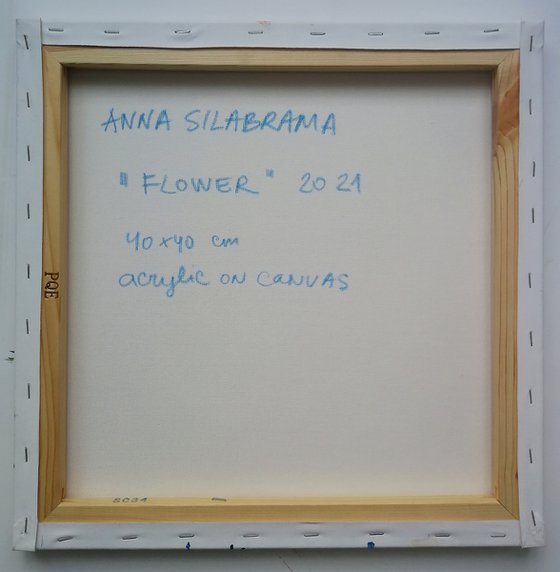 ANNA SILABRAMA
"FLOWER" 2021
40x40 cm
acrylic ON CANVAS
PQE